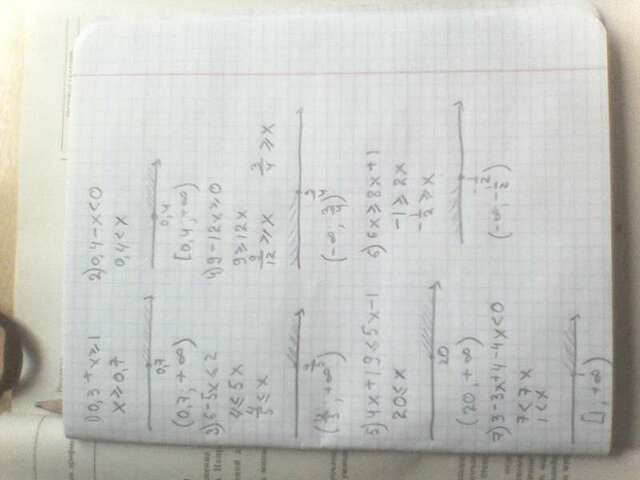 1) 0,3 + x ≥ 1
x ≥ 0,7
0,7
(0,7, +∞)
2) 0,4 - x < 0
0,4 < x
0,4
[0,4, +∞)
3) 6 - 5x ≤ 2
4 ≤ 5x
4/5 ≤ x
4) 9 - 12x ≥ 0
9 ≥ 12x
9/12 ≥ x 3/4 ≥ x
3/4
(-∞, 3/4)
5) 4x + 19 < 5x - 1
20 < x
20
(20, +∞)
6) 6x ≥ 8x + 1
-1 ≥ 2x
-1/2 ≥ x
-1/2
(-∞, -1/2)
7) 3 - 3x + 4 - 4x < 0
7 < 7x
1 < x
1
[1, +∞)